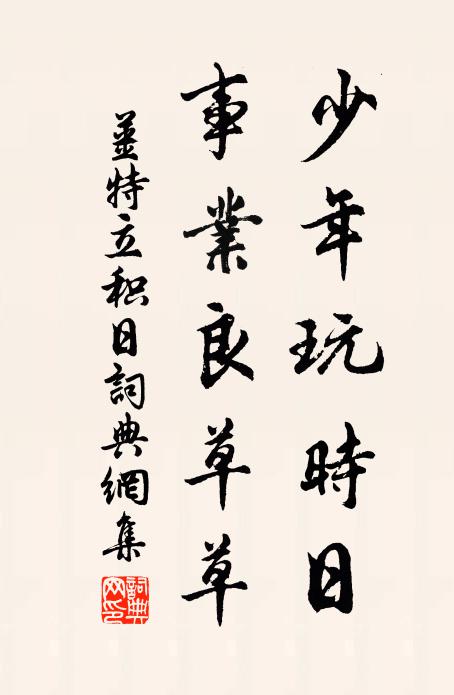 少年玩時日
事業良草草
姜特立积日詞典網集
詞典网印